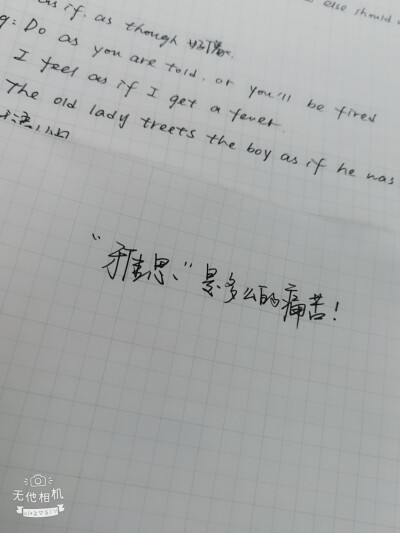 as if, as though 好像.
g: Do as you are told, or you'll be fired
I feel as if I get a fever.
The old lady treets the boy as if he was
"雅思" 是多么的痛苦!
无他相机